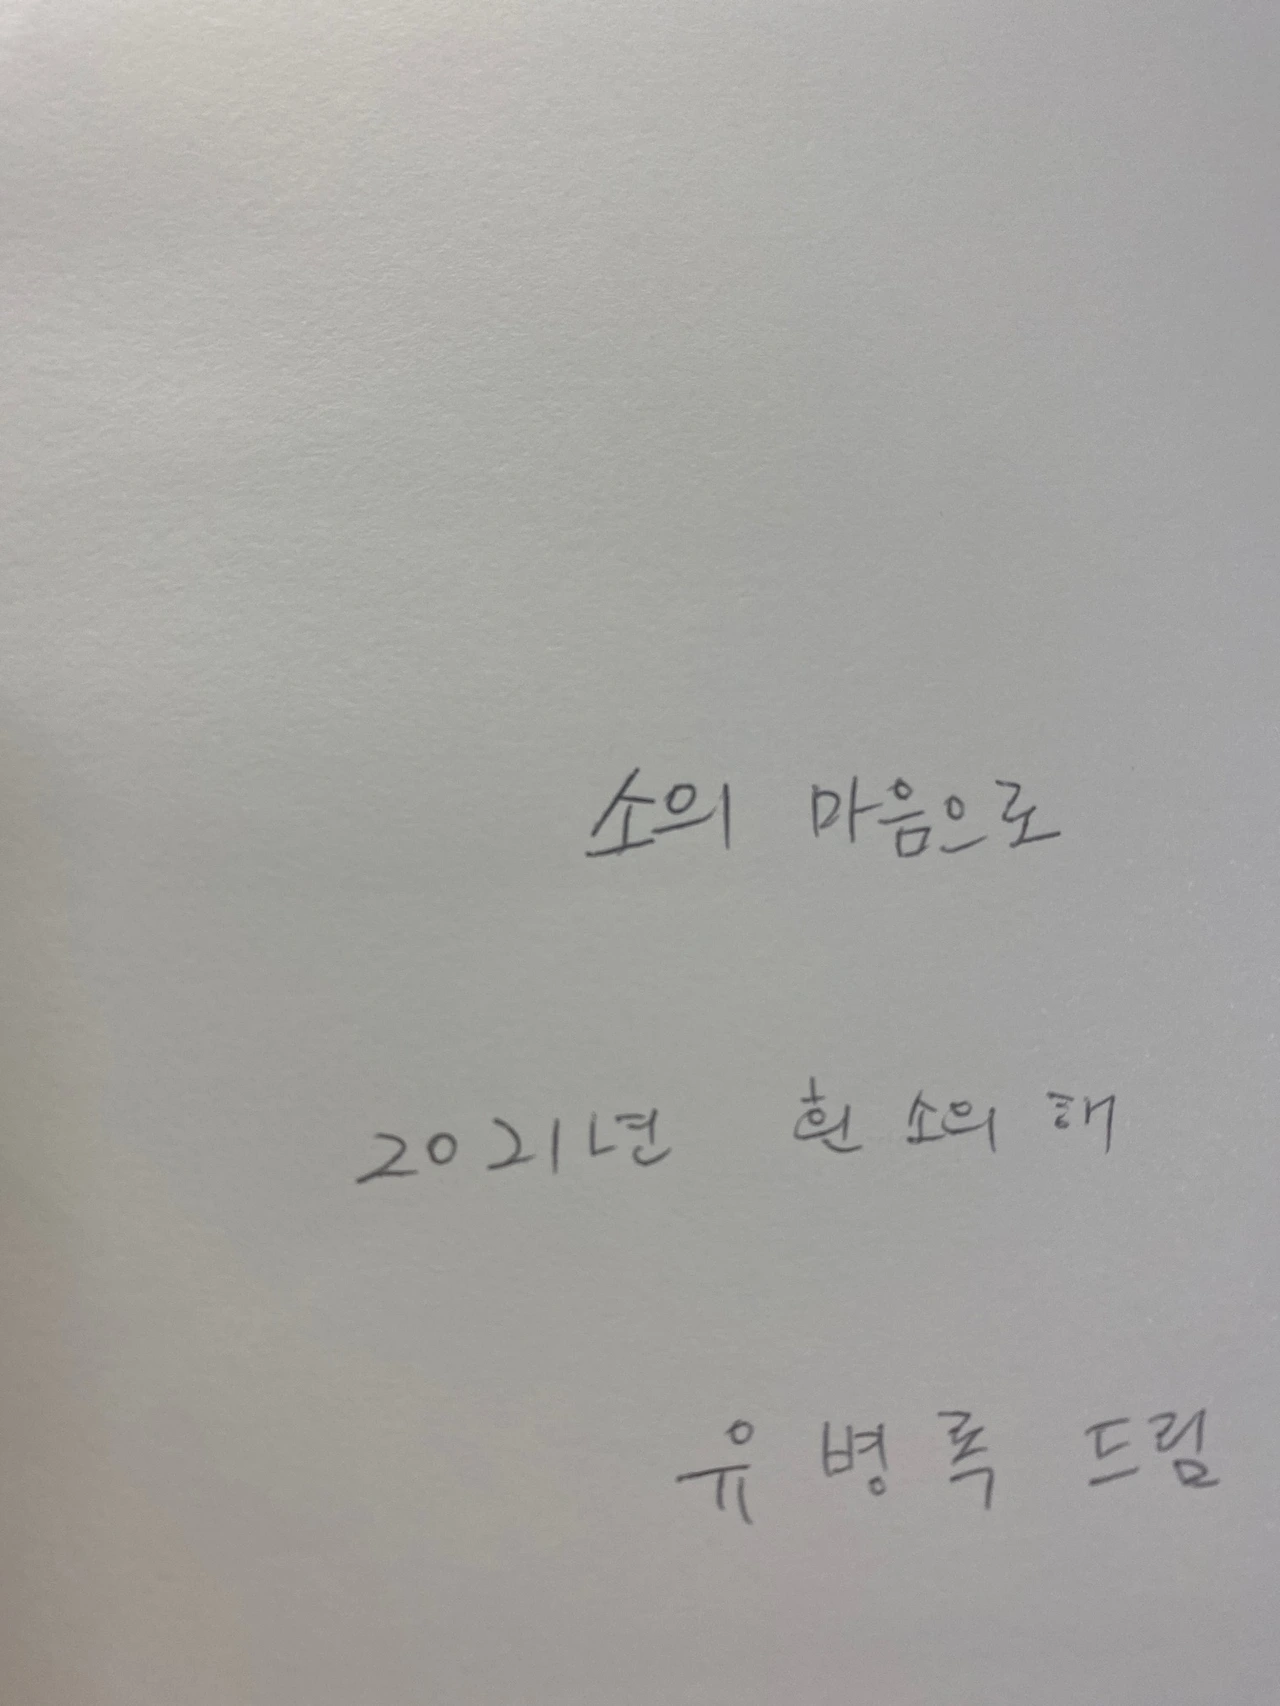 소의 마음으로
2021년 흰 소의 해
유병록 드림